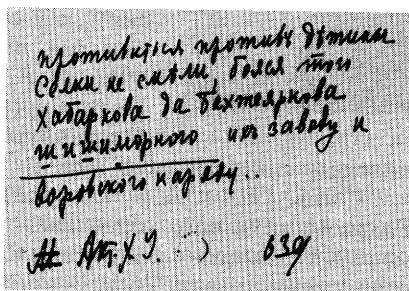 противиться противъ дѣтины
Сенки не смѣли, бояся того
Хабаркова да Бахтеяркова
шишиморного ихъ заводу и
воровского наряду..
639